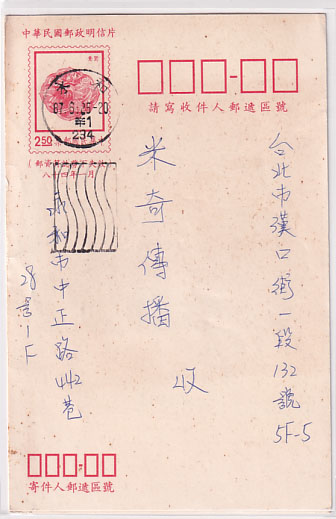 中華民國郵政明信片
永和
87.6.26.-20
甲1
234
2.50
八十四年一月
請寫收件人郵遞區號
台北市漢口街一段132號5F-5
米奇傳播
收
永和市中正路442巷
28号1F
寄件人郵遞區號